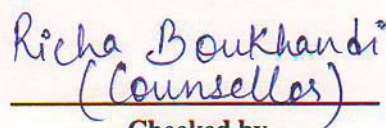 Richa Boukhandi
(Counsellor)
Checked by